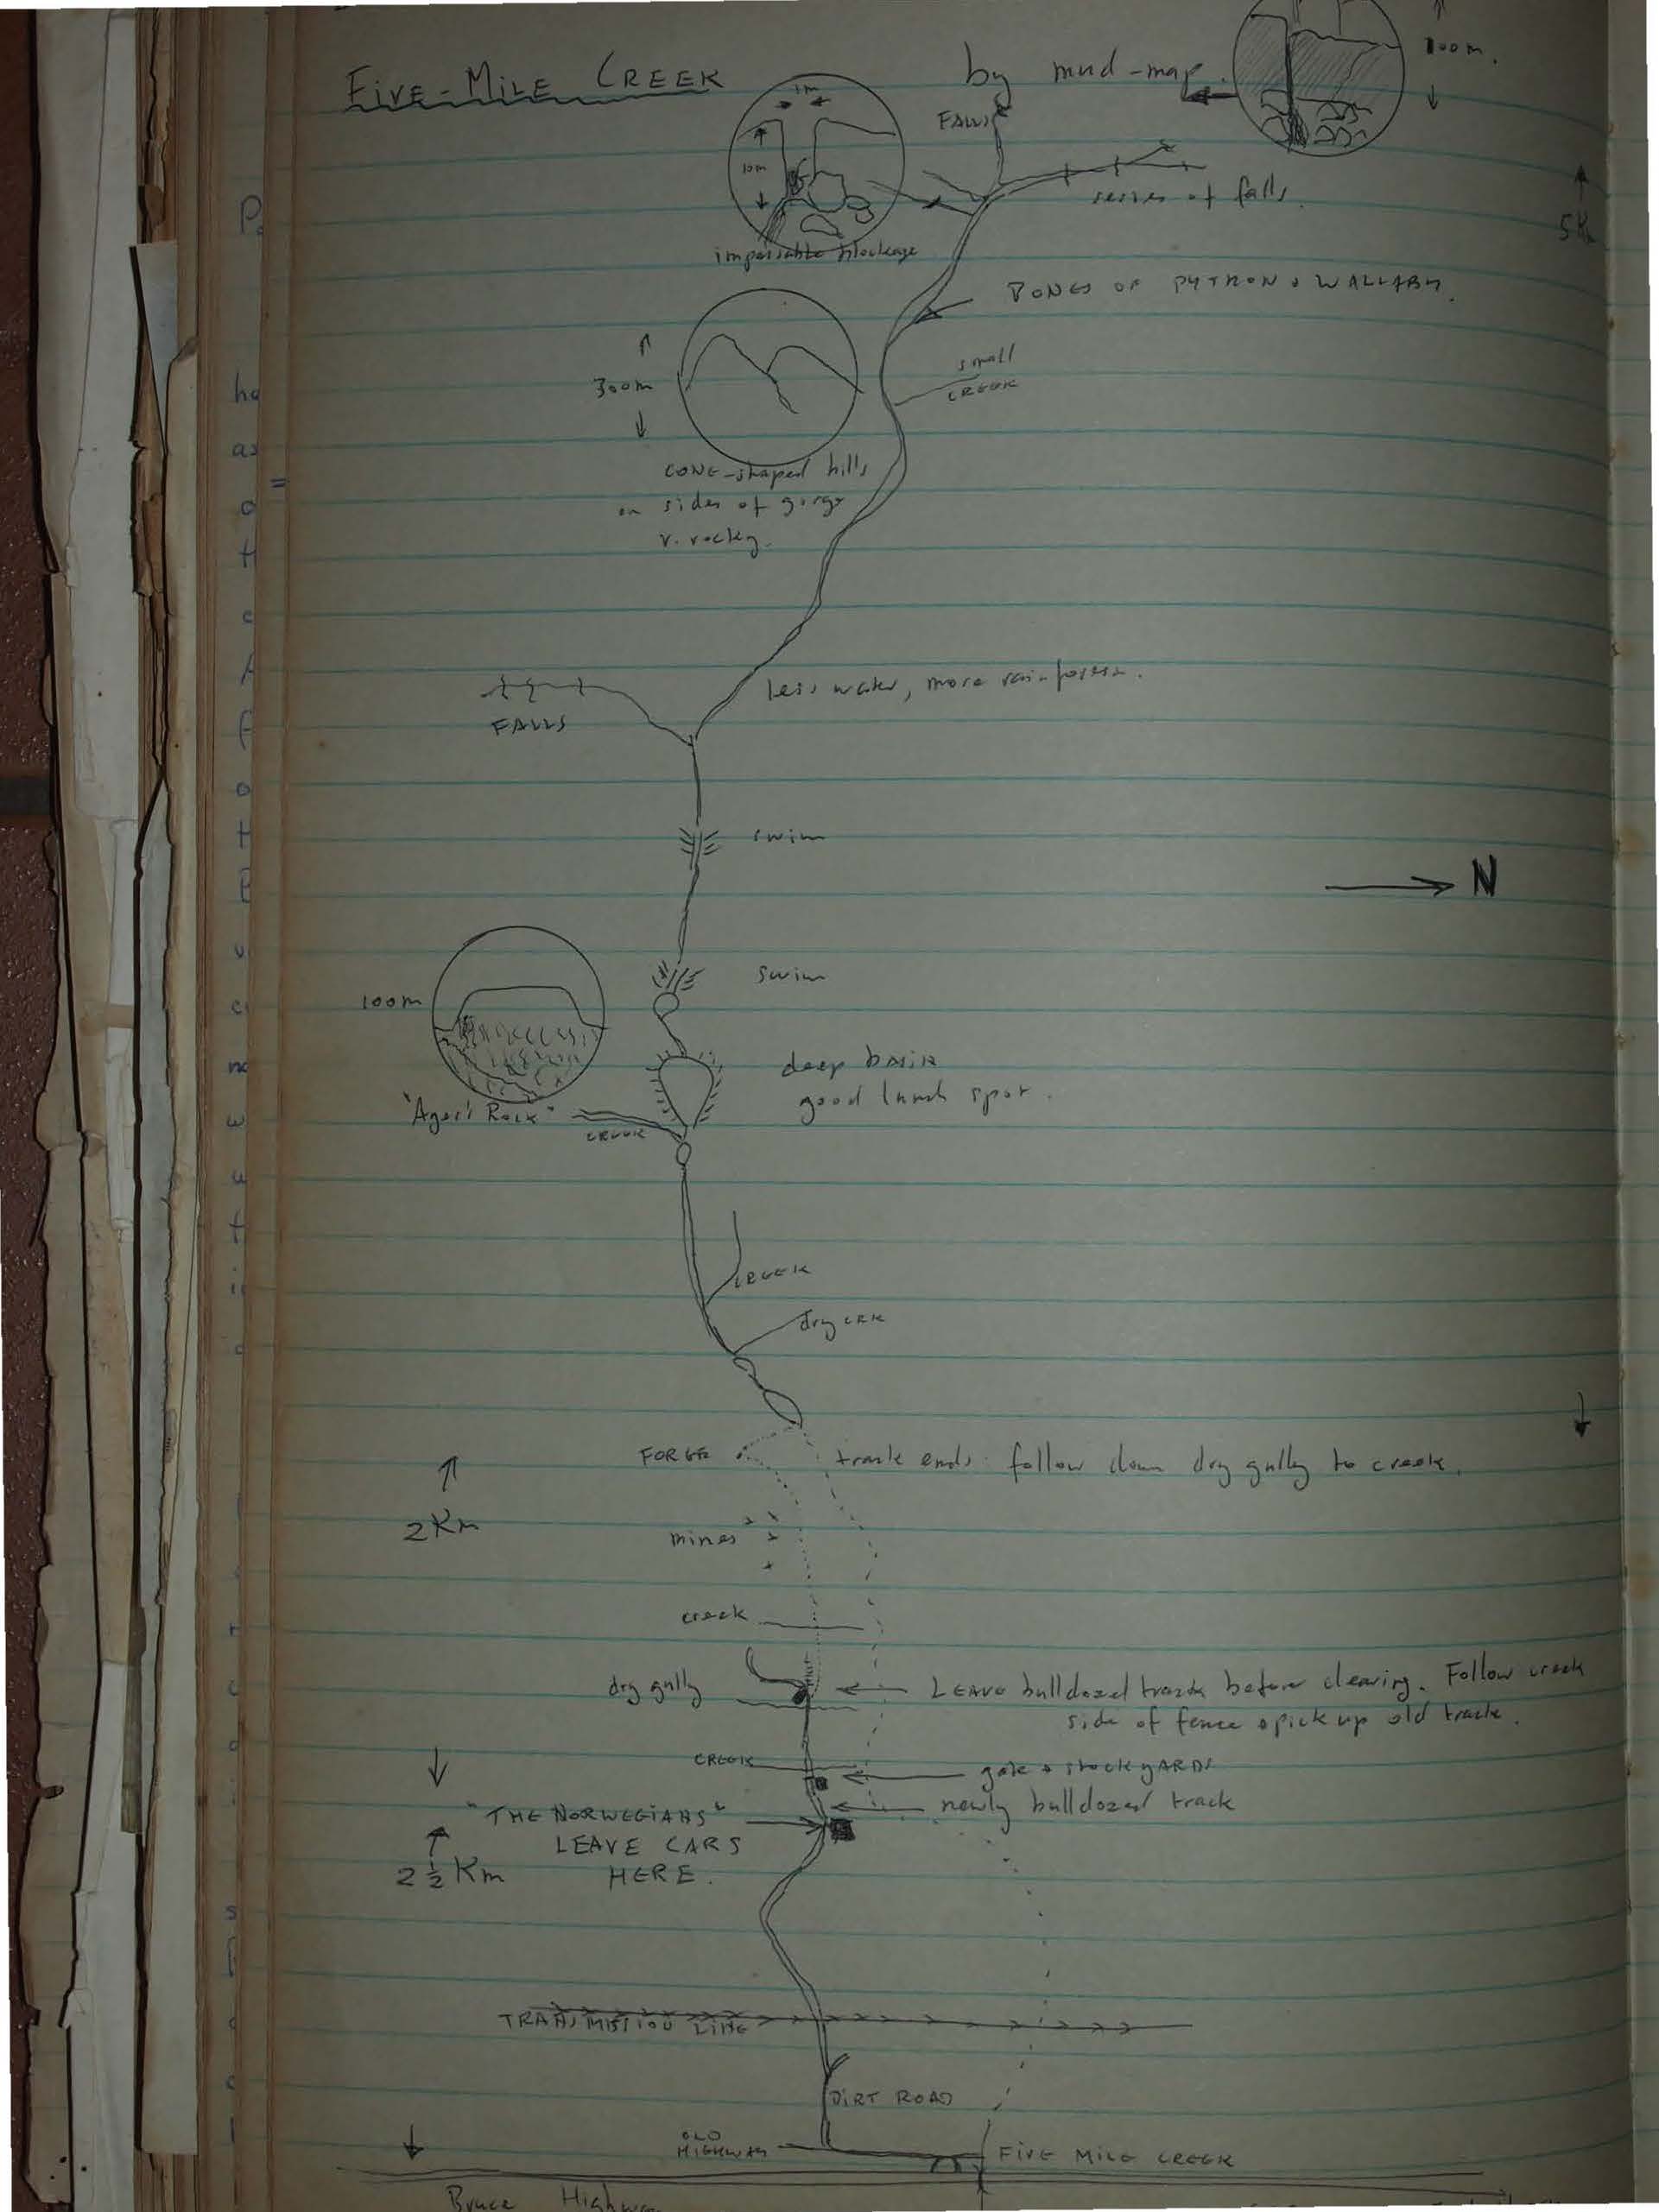 FIVE-MILE CREEK
by mud-map.
100m.
1m
10m
FALLS
series of falls.
5Km
impassable blockage
BONES OF PYTHON & WALLABY.
small
CREEK
300m
CONE-shaped hills
on sides of gorge
v. rocky.
less water, more rainforest.
FALLS
swim
N
swim
100m
deep basin
good lunch spot.
"Ager's Rock"
CREEK
CREEK
dry CRK
FORGE
track ends. follow down dry gully to creek.
2Km
mines
creek
dry gully
LEAVE bulldozed track before clearing. Follow creek
side of fence & pick up old track.
CREEK
gate & stockyARDS
newly bulldozed track
"THE NORWEGIANS"
LEAVE CARS
HERE.
2½ Km
TRANSMISSION LINE
DIRT ROAD
OLD
HIGHWAY
FIVE MILE CREEK
Bruce Highway